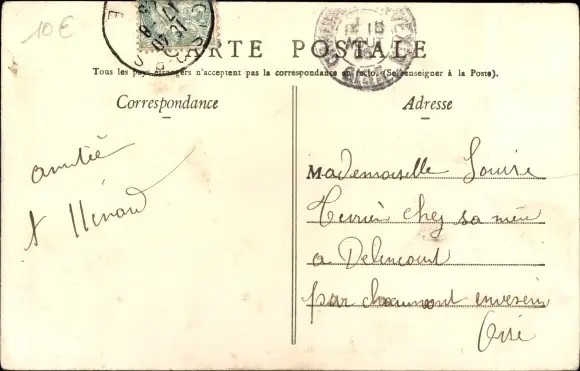 10€
CARTE POSTALE
Tous les pays étrangers n'acceptent pas la correspondance au recto. (Se renseigner à la Poste).
Correspondance
Adresse
amitié
Ménard
Mademoiselle Louise
chez sa mère
a Delincourt
par chaumont envexin
Oise